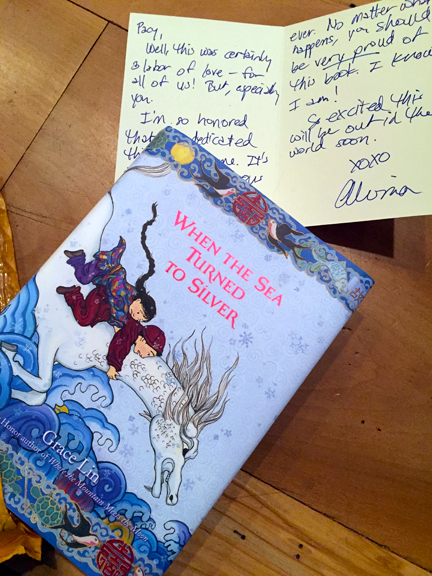 Pacy,
Well, this was certainly
a labor of love – for
all of us! But, especially
you.
I'm so honored
dedicated
It's
ever. No matter what
happens, you should
be very proud of
this book. I know
I am!
So excited this
will be out in the
world soon.
xoxo
Alvina
WHEN THE SEA
TURNED
TO SILVER
Grace Lin
Honor author of Where the Mountain Meets the Moon